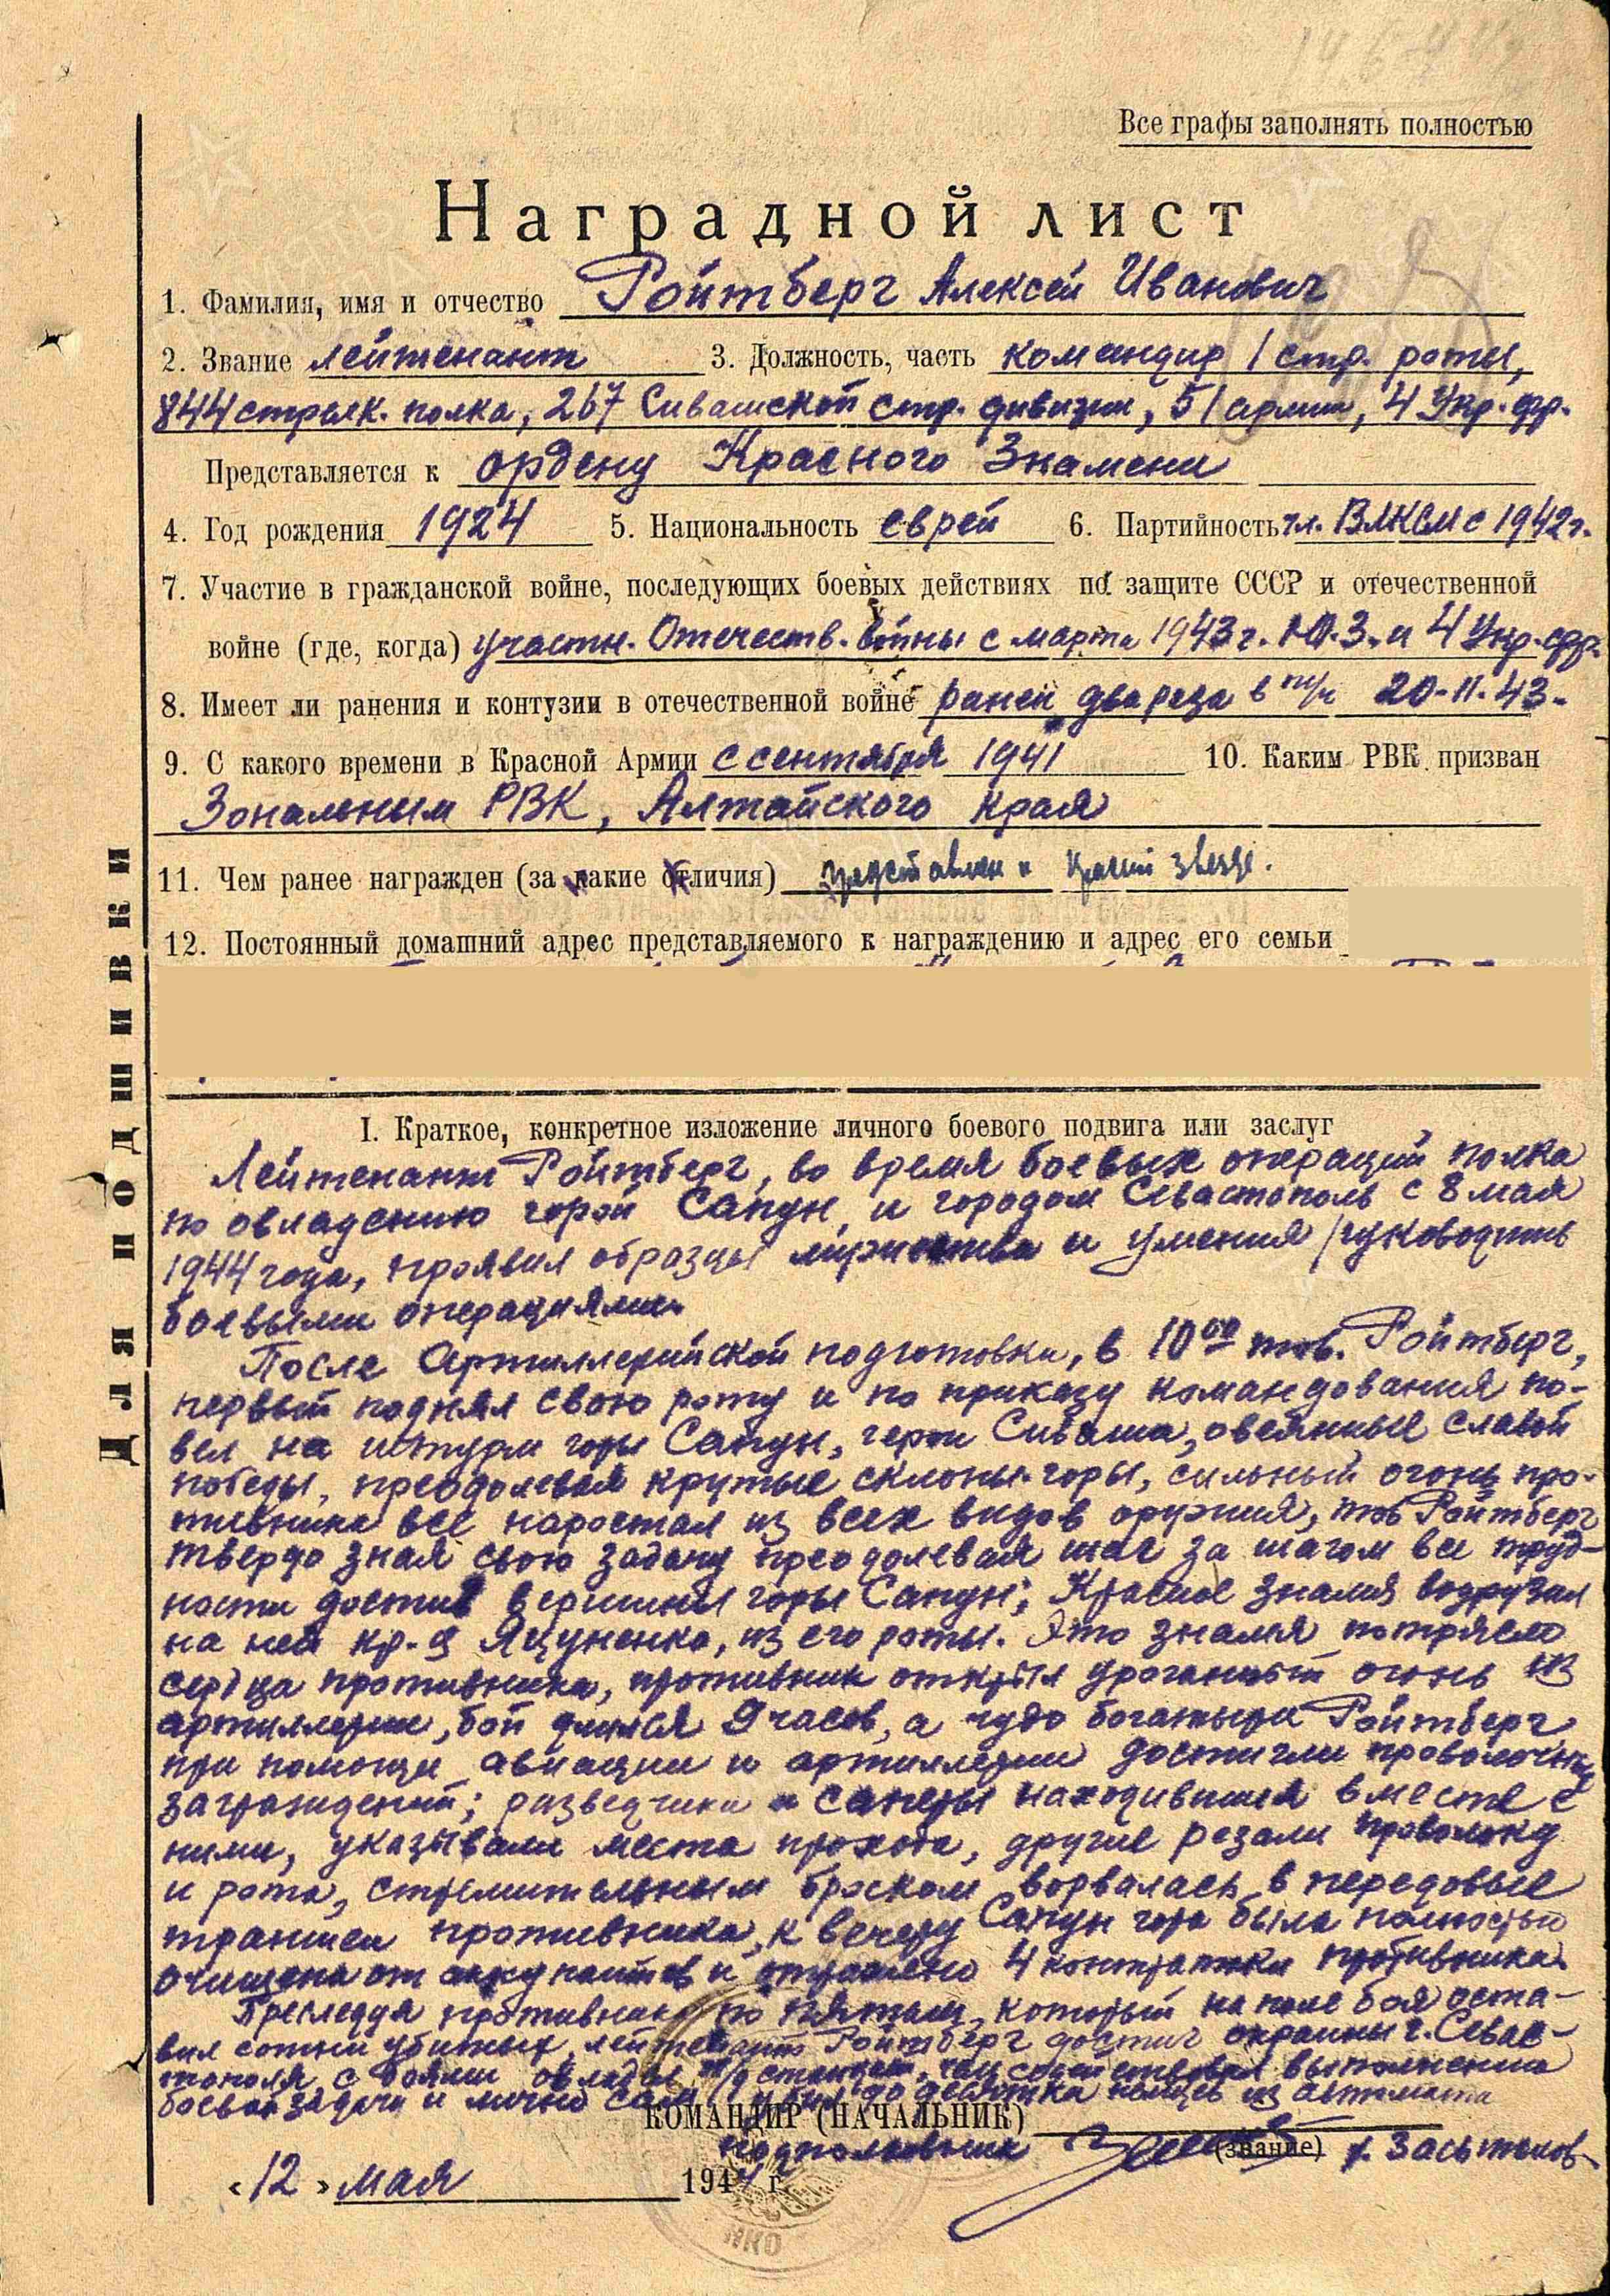 Все графы заполнять полностью
Наградной лист
1. Фамилия, имя и отчество Ройтберг Алексей Иванович
2. Звание лейтенант 3. Должность, часть командир 1 стр. роты,
844 стрелк. полка, 267 Сивашской стр. дивизии, 51 армии, 4 Укр. фр.
Представляется к ордену Красного Знамени
4. Год рождения 1924 5. Национальность еврей 6. Партийность чл. ВЛКСМ с 1942 г.
7. Участие в гражданской войне, последующих боевых действиях по защите СССР и отечественной
войне (где, когда) участн. Отечеств. войны с марта 1943 г. Ю.З. и 4 Укр. фр.
8. Имеет ли ранения и контузии в отечественной войне ранен два раза в т/ч 20-11-43.
9. С какого времени в Красной Армии с сентября 1941 10. Каким РВК призван
Зональным РВК, Алтайского края
11. Чем ранее награжден (за какие отличия) представлен к Красной звезде.
12. Постоянный домашний адрес представляемого к награждению и адрес его семьи
Для подшивки
I. Краткое, конкретное изложение личного боевого подвига или заслуг
Лейтенант Ройтберг, во время боевых операций полка
по овладению горой Сапун и городом Севастополь с 8 мая
1944 года, проявил образцы мужества и умения руководить
боевыми операциями.
После артиллерийской подготовки, в 10 00 тов. Ройтберг,
первый поднял свою роту и по приказу командования по-
вел на штурм горы Сапун, герои Сиваша, овеянные славой
победы, преодолевая крутые склоны горы, сильный огонь про-
тивника все наростал из всех видов оружия, тов Ройтберг
твердо зная свою задачу преодолевая шаг за шагом все труд-
ности достиг вершины горы Сапун; Красное знамя водрузил
на ней кр-ц Яцуненко, из его роты. Это знамя потрясло
сердца противника, противник открыл ураганный огонь из
артиллерии, бой длился 9 часов, а чудо богатыри Ройтберг
при помощи авиации и артиллерии достигли проволочных
заграждений; разведчики и саперы находившиеся вместе с
ними, указывали места прохода, другие резали проволоку
и рота, стремительным броском ворвалась в передовые
траншеи противника, к вечеру Сапун гора была полностью
очищена от оккупантов и отражено 4 контратаки противника.
Преследуя противника по пятам, который на поле боя оста-
вил сотни убитых, лейтенант Ройтберг достиг окраины г. Севас-
тополя с боями овладев ж/д станцией, чем содействовал выполнению
боевой задачи и лично сам убил до десятка немцев из автомата
КОМАНДИР (НАЧАЛЬНИК)
подполковник (звание) Засьтеков
«12» мая 1944 г.
НКО